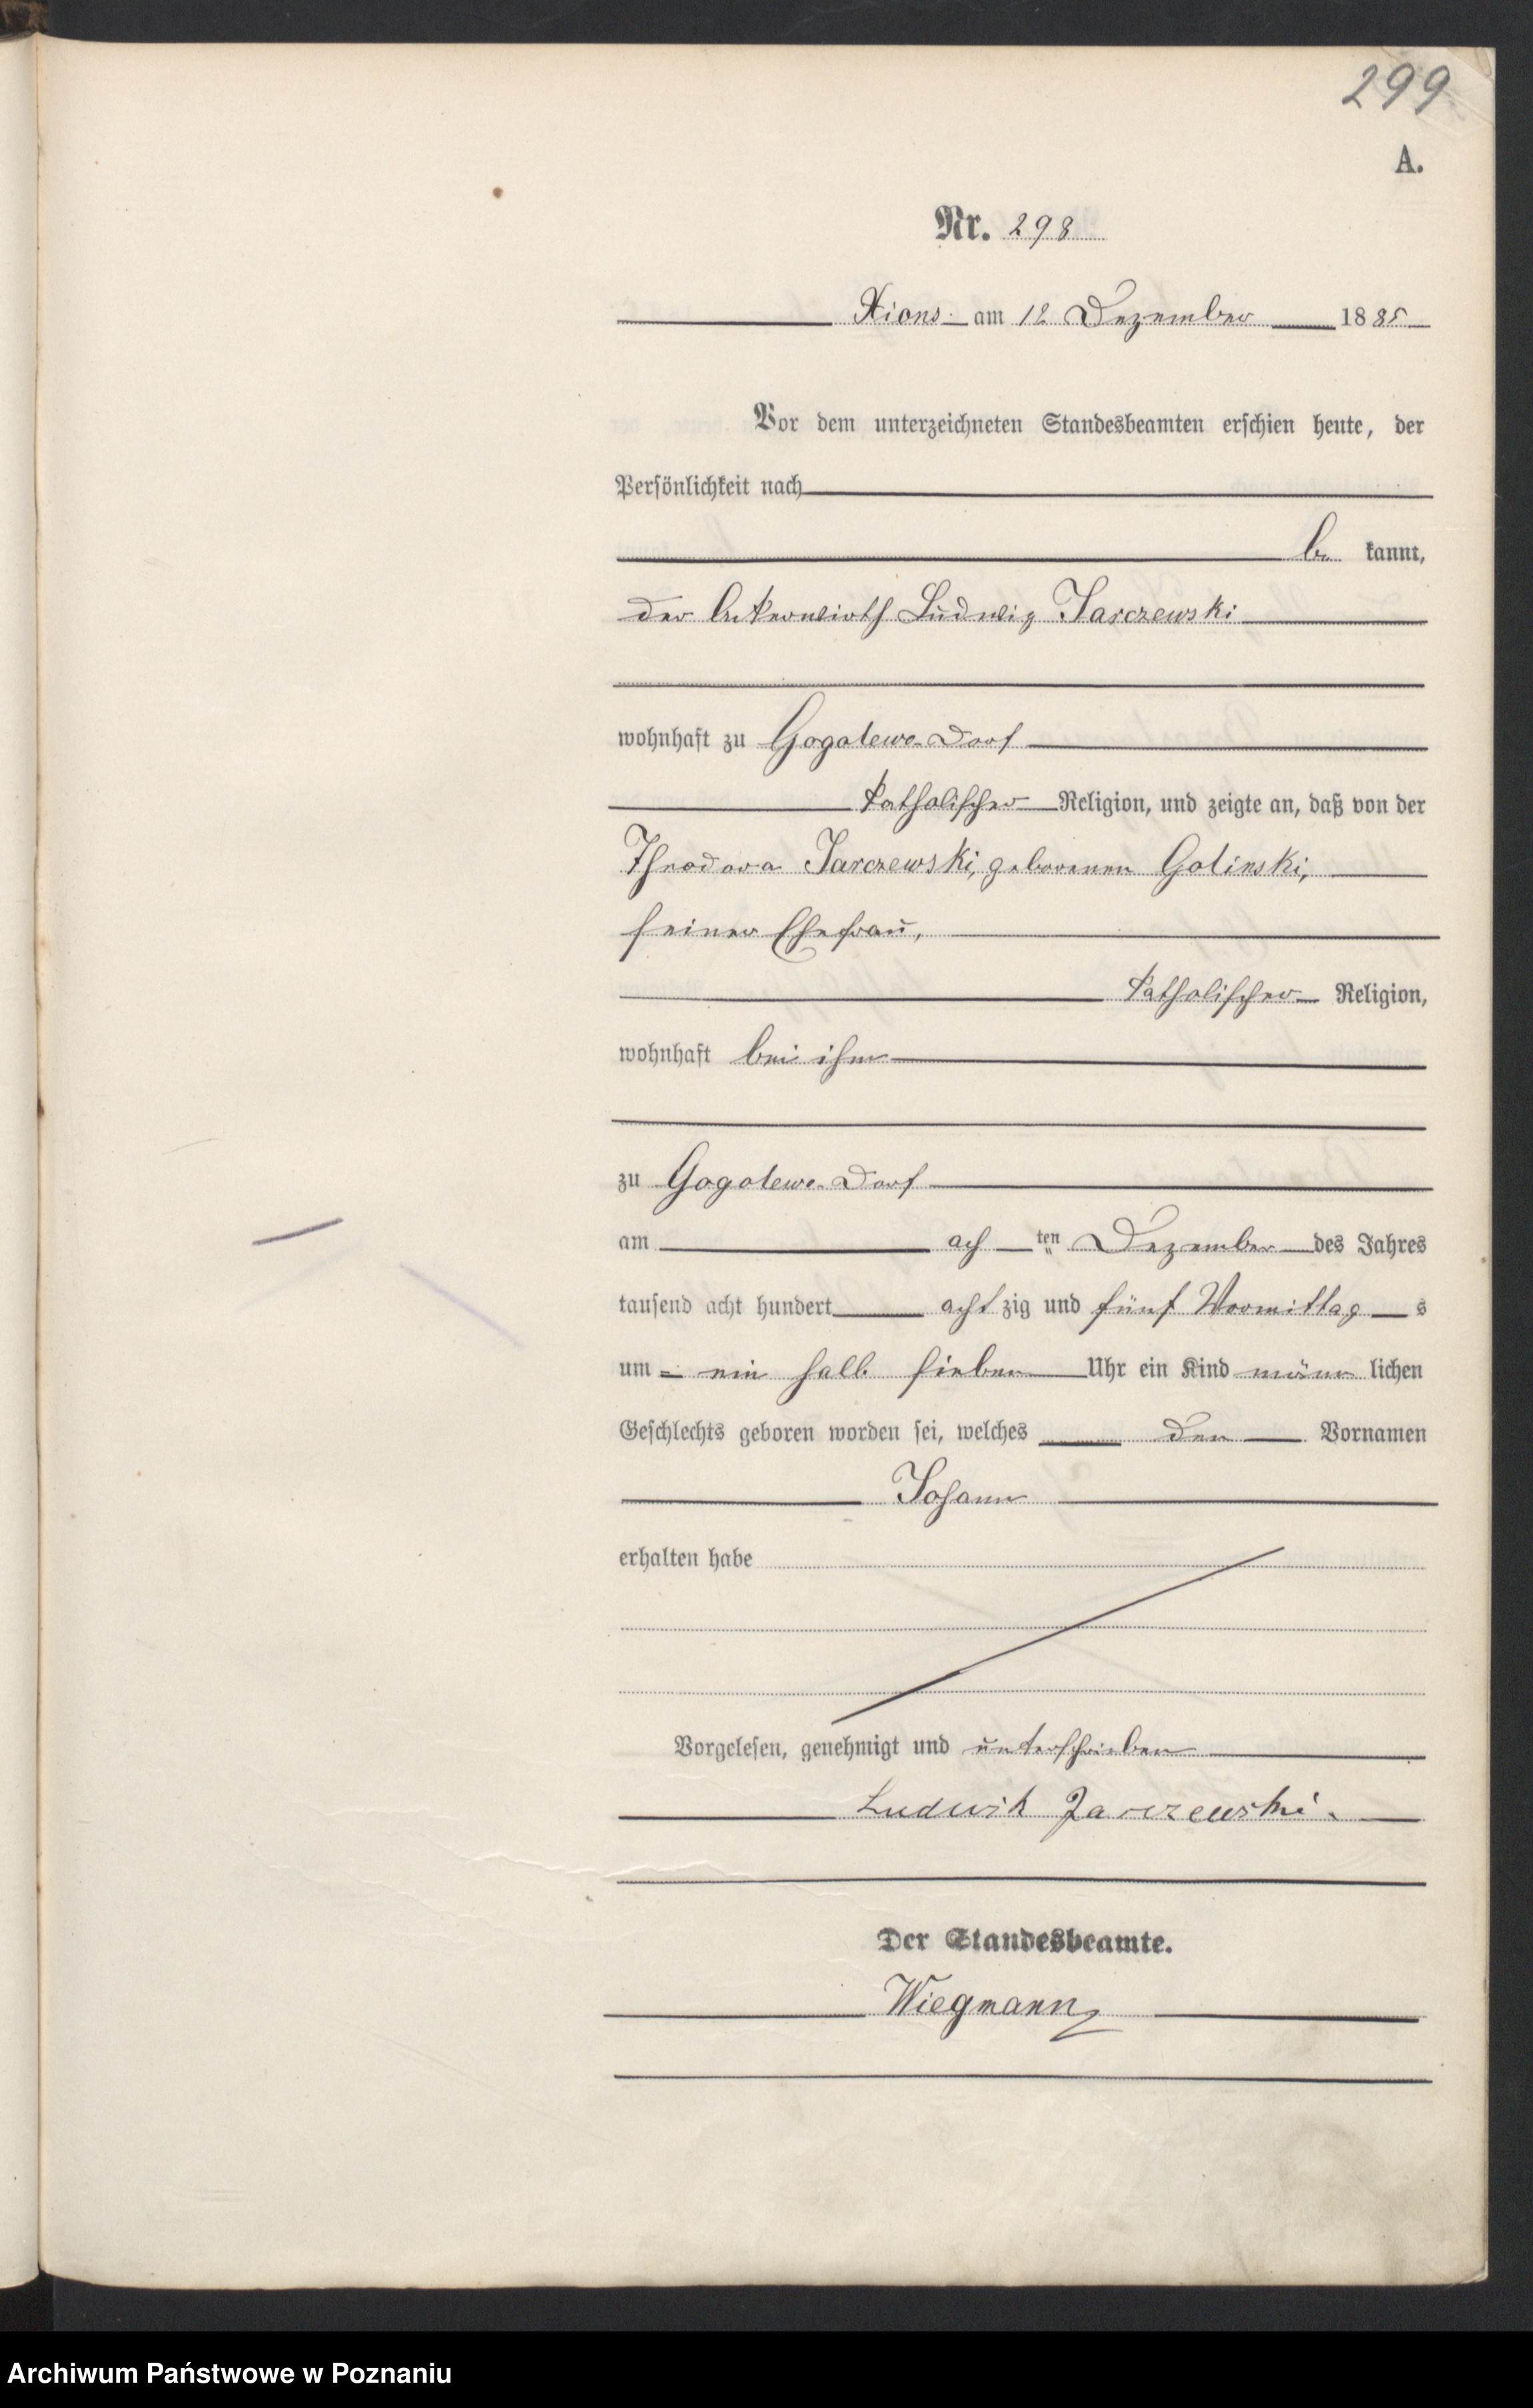 299
A.
Nr. 298
Xions am 12 Dezember 1885
Vor dem unterzeichneten Standesbeamten erschien heute, der
Persönlichkeit nach
be kannt,
der Ackerwirth Ludwig Jarczewski
wohnhaft zu Gogolewo-Dorf
katholischer Religion, und zeigte an, daß von der
Theodora Jarczewski, geborenen Golinski,
seiner Ehefrau,
katholischer Religion,
wohnhaft bei ihm
zu Gogolewo-Dorf
am ach ten Dezember des Jahres
tausend acht hundert achtzig und fünf Vormittags
um ein halb sieben Uhr ein Kind männlichen
Geschlechts geboren worden sei, welches den Vornamen
Johann
erhalten habe
Vorgelesen, genehmigt und unterschrieben
Ludwik Jarczewski.
Der Standesbeamte.
Wiegmann
Archiwum Państwowe w Poznaniu